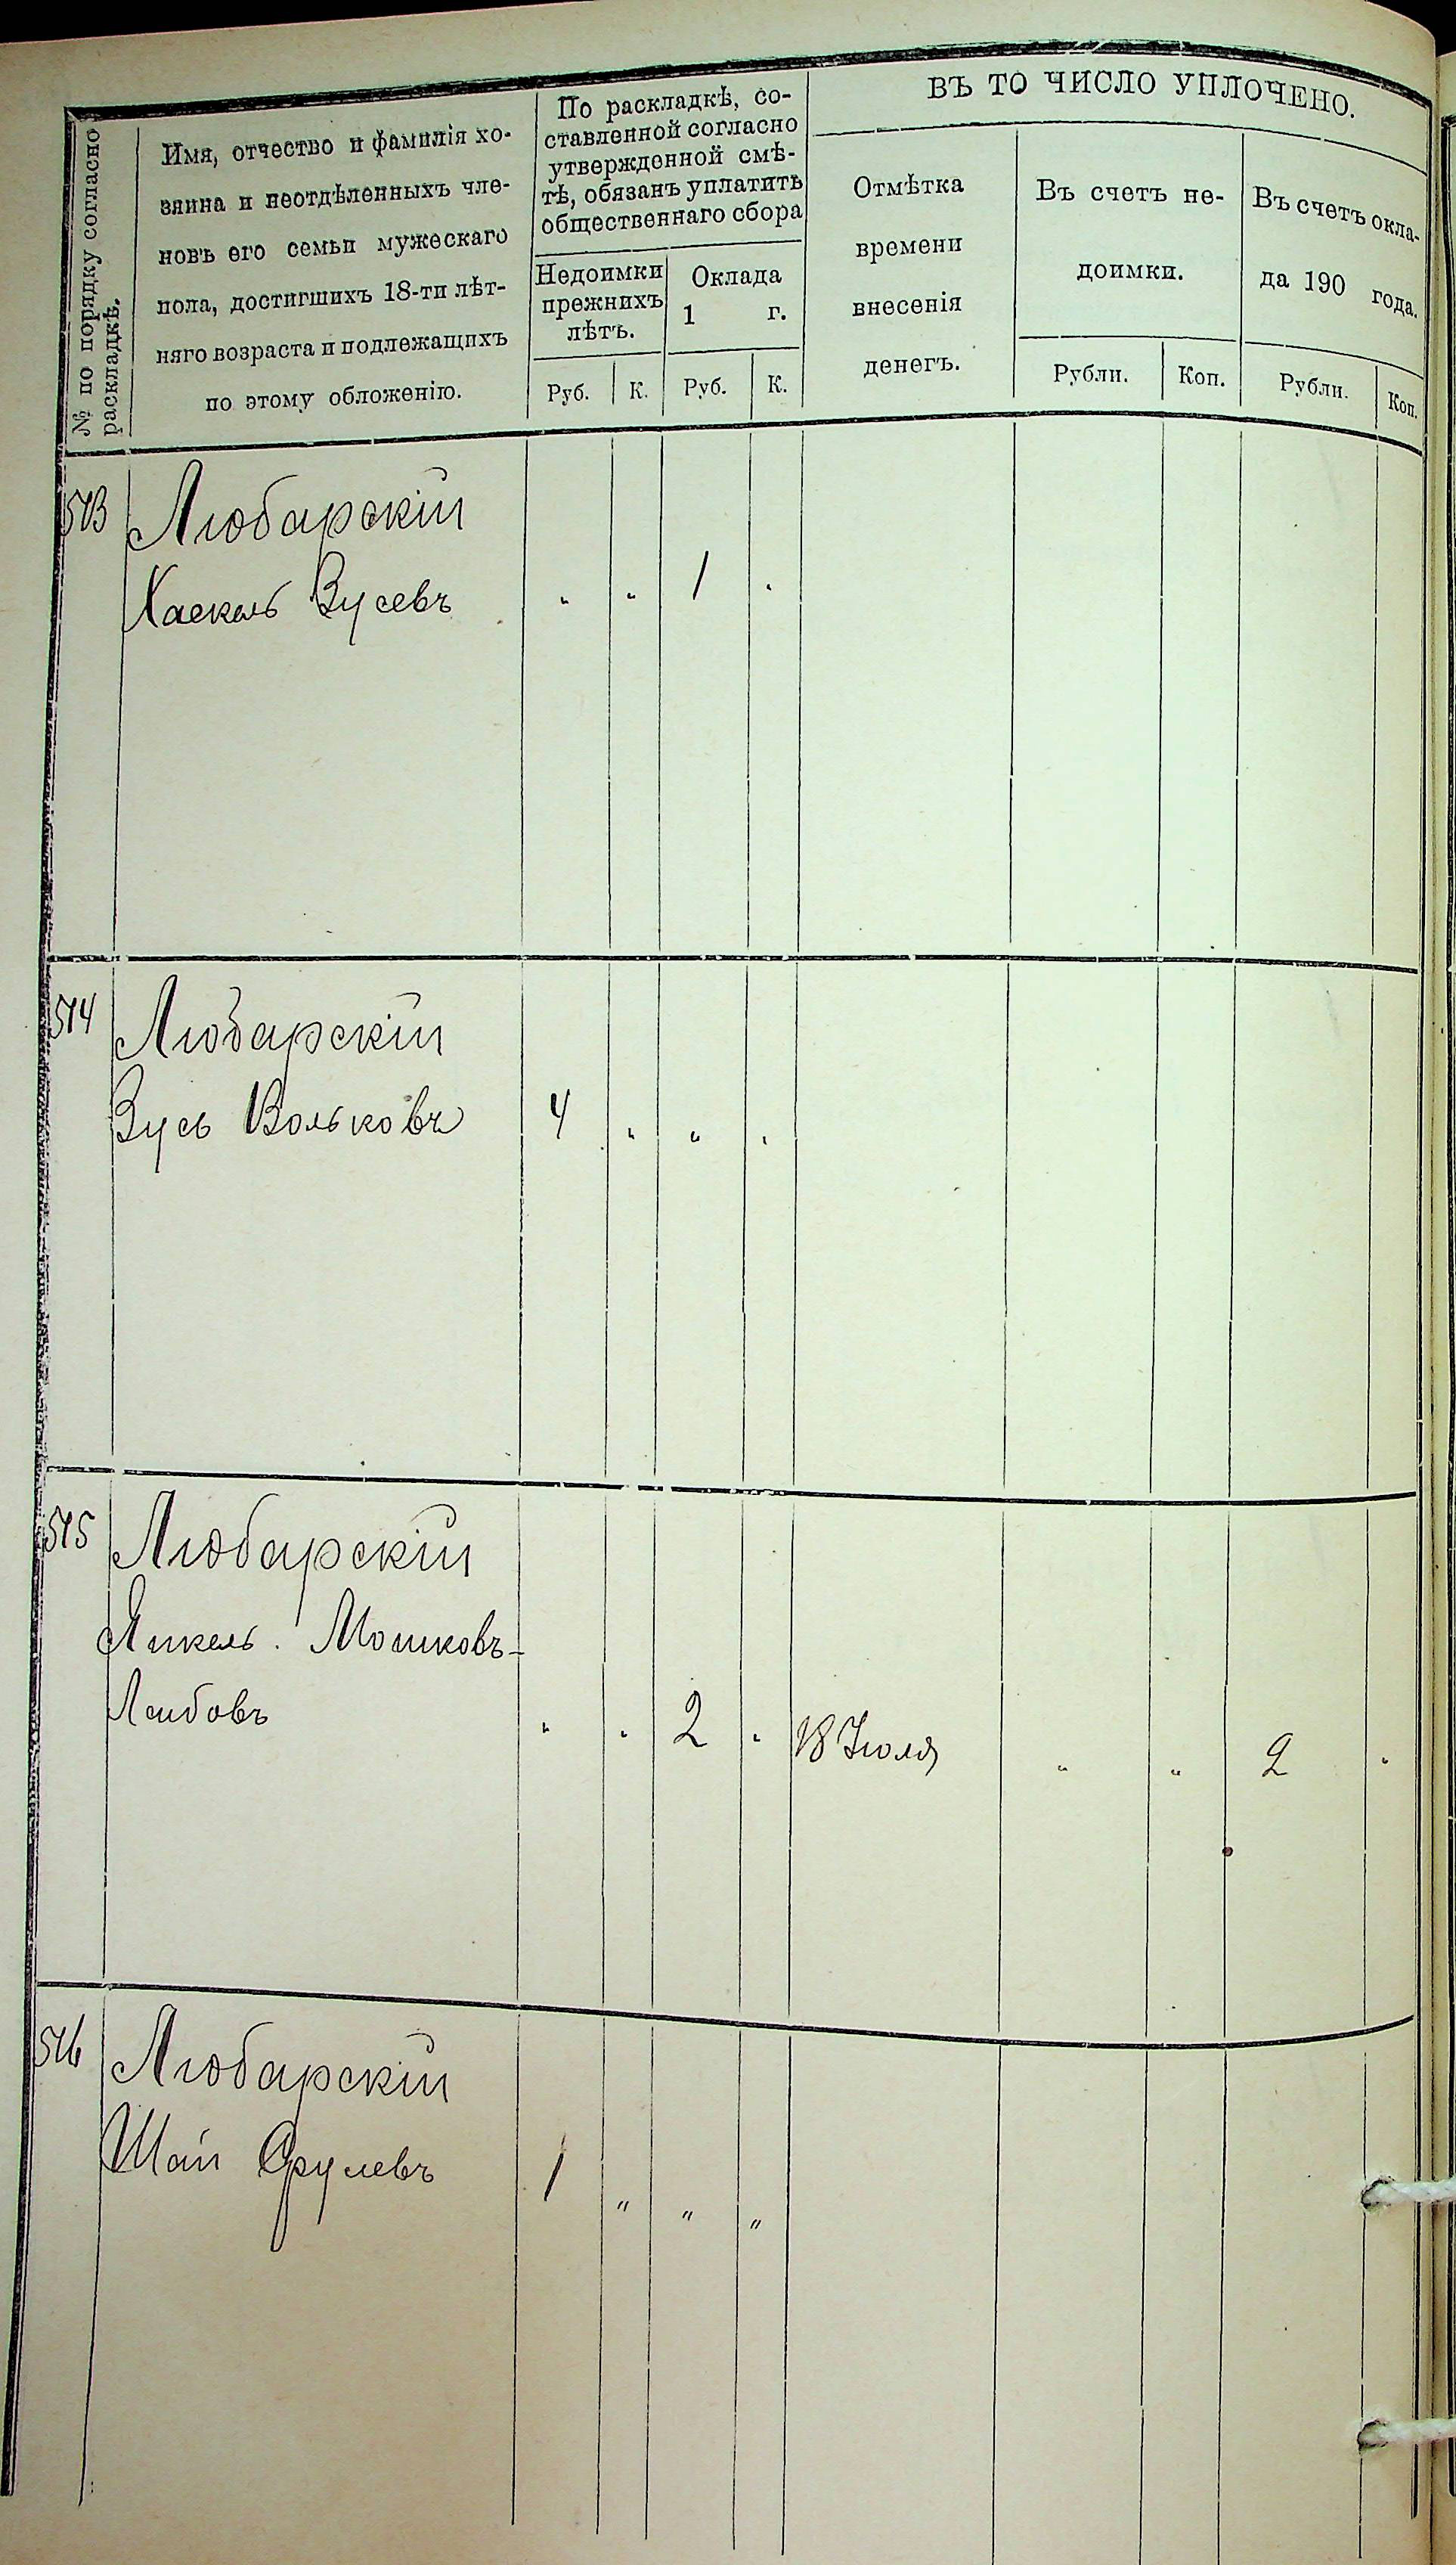 № по порядку согласно
раскладкѣ.
Имя, отчество и фамилія хо-
зяина и неотдѣленныхъ чле-
новъ его семьи мужескаго
пола, достигшихъ 18-ти лѣт-
няго возраста и подлежащихъ
по этому обложенію.
По раскладкѣ, со-
ставленной согласно
утвержденной смѣ-
тѣ, обязанъ уплатить
общественнаго сбора
Недоимки
прежнихъ
лѣтъ.
Оклада
1 г.
Руб. К. Руб. К.
ВЪ ТО ЧИСЛО УПЛОЧЕНО.
Отмѣтка
времени
внесенія
денегъ.
Въ счетъ не-
доимки.
Рубли. Коп.
Въ счетъ окла-
да 190 года.
Рубли. Коп.
513 Любарскій
Хаскель Зусевъ " " 1 "
514 Любарскій
Зусь Вольковъ 4 " " "
515 Любарскій
Янкель Мошковъ-
Лейбовъ " " 2 " 18 Іюля " " 2 "
516 Любарскій
Шая Срулевъ 1 " " "